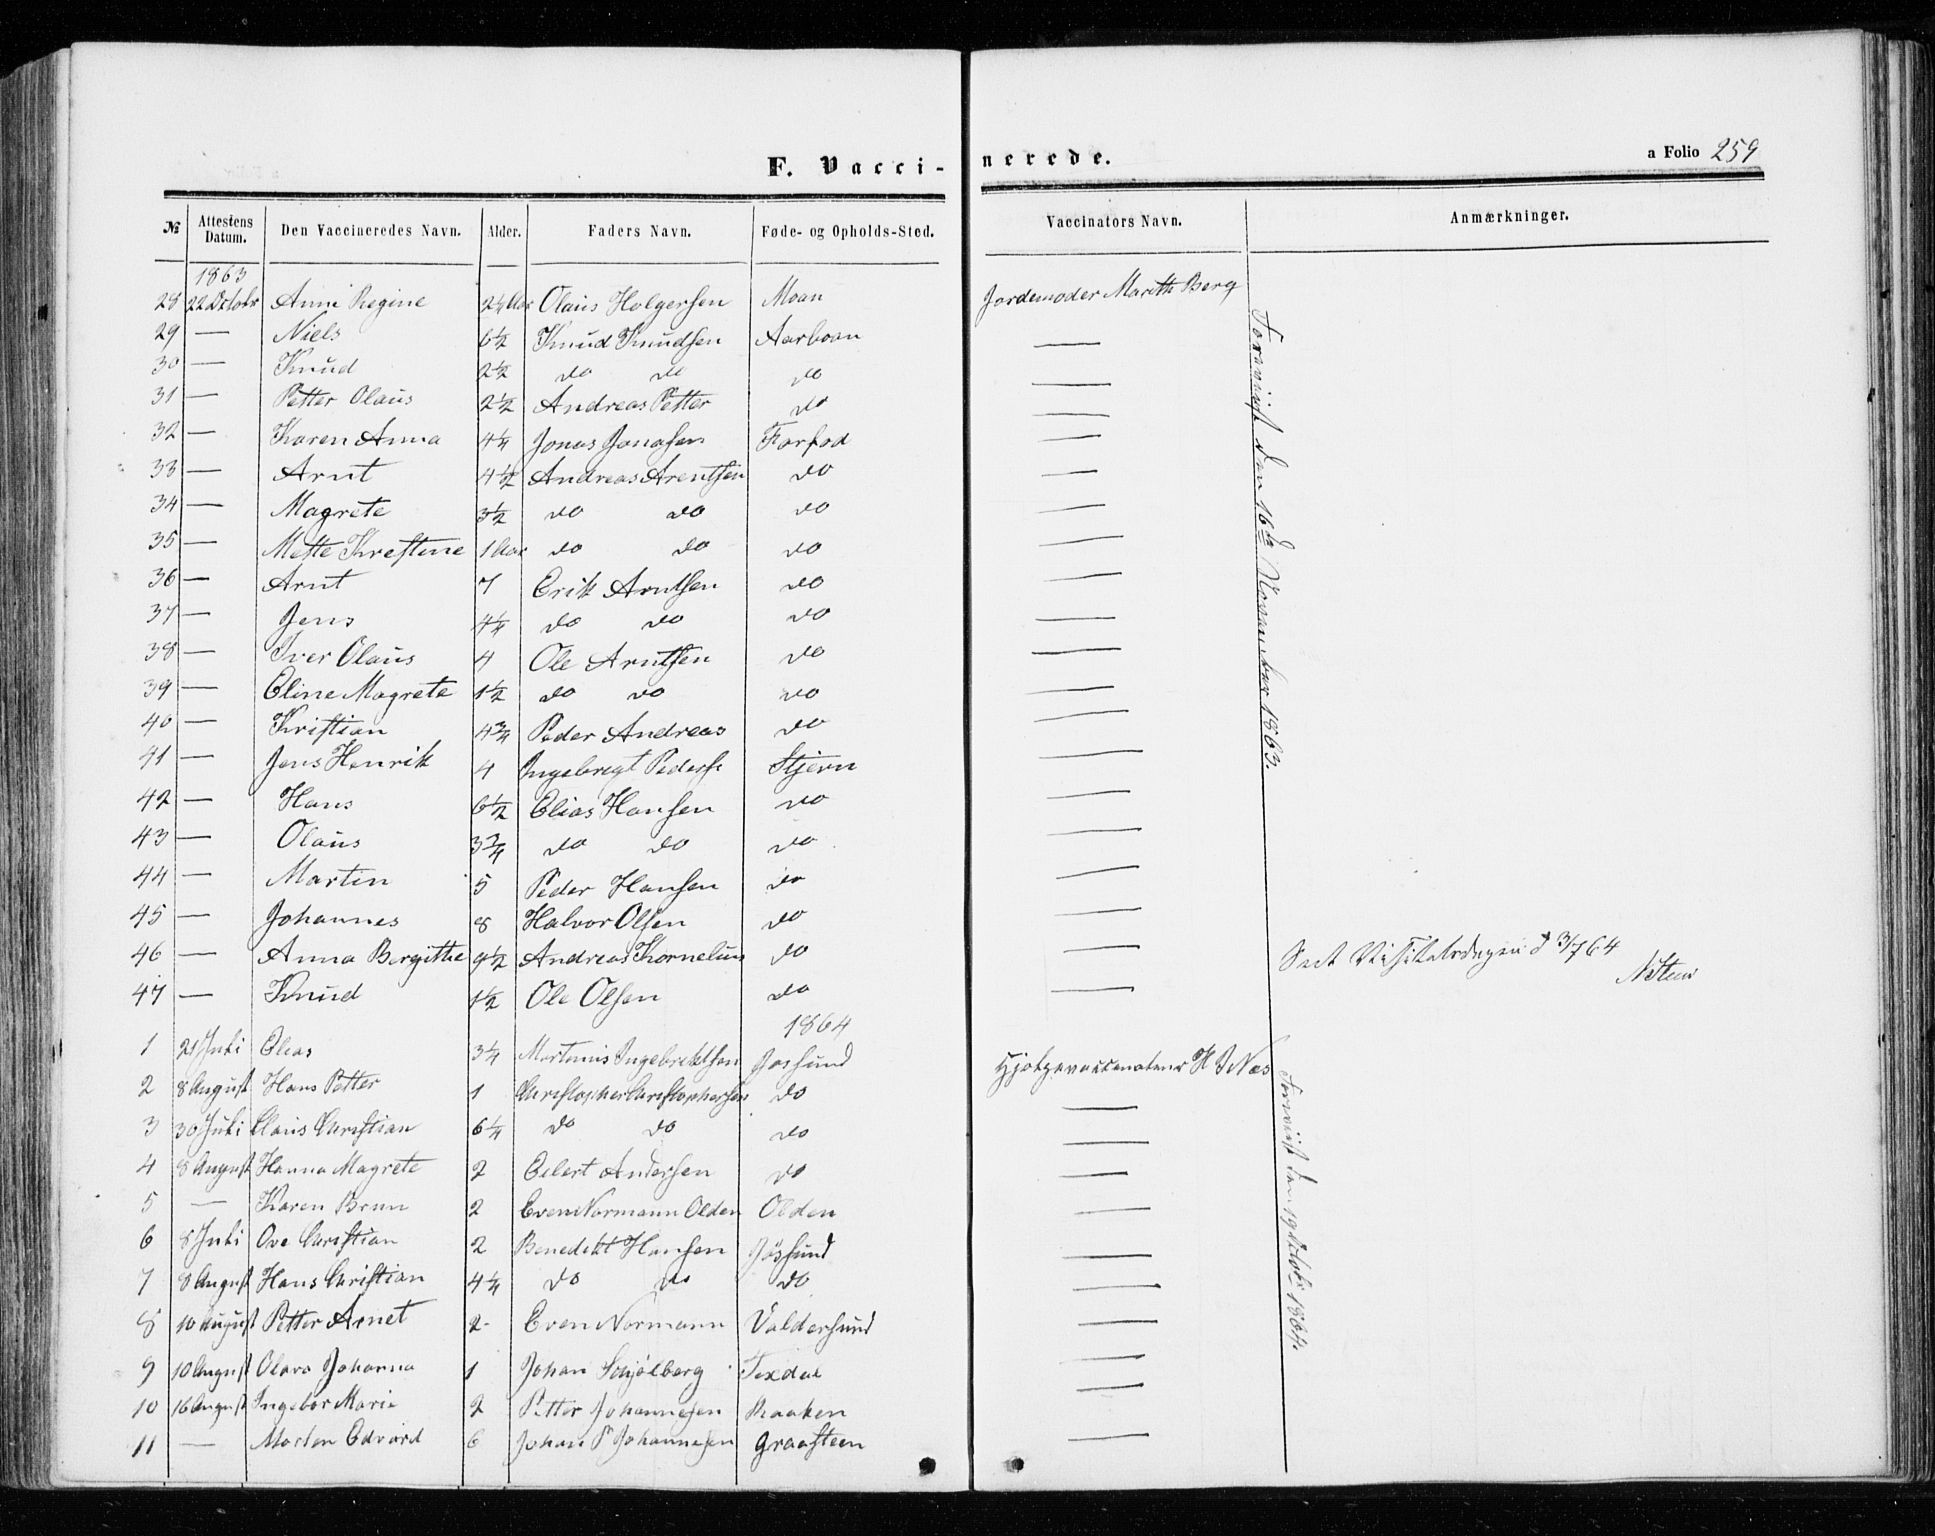 F. Vacci-nerede.
a Folio 259
№ Attestens Datum. Den Vaccineredes Navn. Alder. Faders Navn. Føde- og Opholds-Sted. Vaccinators Navn. Anmærkninger.
1863
28 22 Octobr Anne Regine 2¼ Aar Olaus Holgersen Moan Jordemoder Mareth Berg
29 — Niels 6½ Knud Knudsen Aarboan —
30 — Knud 2½ do do do —
31 — Petter Olaus 2½ Andreas Petter do —
32 — Karen Anna 4¼ Jonas Jonasen Farfod —
33 — Arnt 4½ Andreas Arentsen do —
34 — Magrete 3½ do do do —
35 — Mette Krestine 1 Aar do do do —
36 — Arnt 7 Erik Arntsen do —
37 — Jens 4¼ do do do —
38 — Iver Olaus 4 Ole Arntsen do —
39 — Eline Magrete 1½ do do do —
40 — Kristian 4¾ Peder Andreas do —
41 — Jens Henrik 4 Ingebregt Peders Stjern —
42 — Hans 6½ Elias Hansen do —
43 — Olaus 3¾ do do do —
44 — Martin 5 Peder Hansen do —
45 — Johannes 8 Halvor Olsen do —
46 — Anna Bergitthe 9½ Andreas Kornelius do —
47 — Knud 1½ Ole Olsen do —
Forevist den 16de November 1863.
Seet Visitatsdagen d 3/7 64
1864
1 21 Juli Elias 3¼ Martinus Ingebriktsen Jøssund Hjælpevaccinateur H J Næs
2 8 August Hans Petter 1 Christopher Christophersen do —
3 30 Juli Claus Christian 6¼ do do do —
4 8 August Hanna Magrete 2 Eilert Andersen do —
5 — Karen Brun 2 Even Normann Olden Olden —
6 8 Juli Ove Christian 2 Benedikt Hansen Jøssund —
7 8 August Hans Christian 4¼ do do do —
8 10 August Petter Arnet 2- Even Normann Valdersund —
9 10 August Olava Johanna 1 Johan Schjølberg Texdal —
10 16 August Ingebor Marie 2 Petter Johannesen Raaken —
11 — Morten Edvard 6 Johan P Johannesen Graasteen —
Forevist den 19 Octobr 1864.